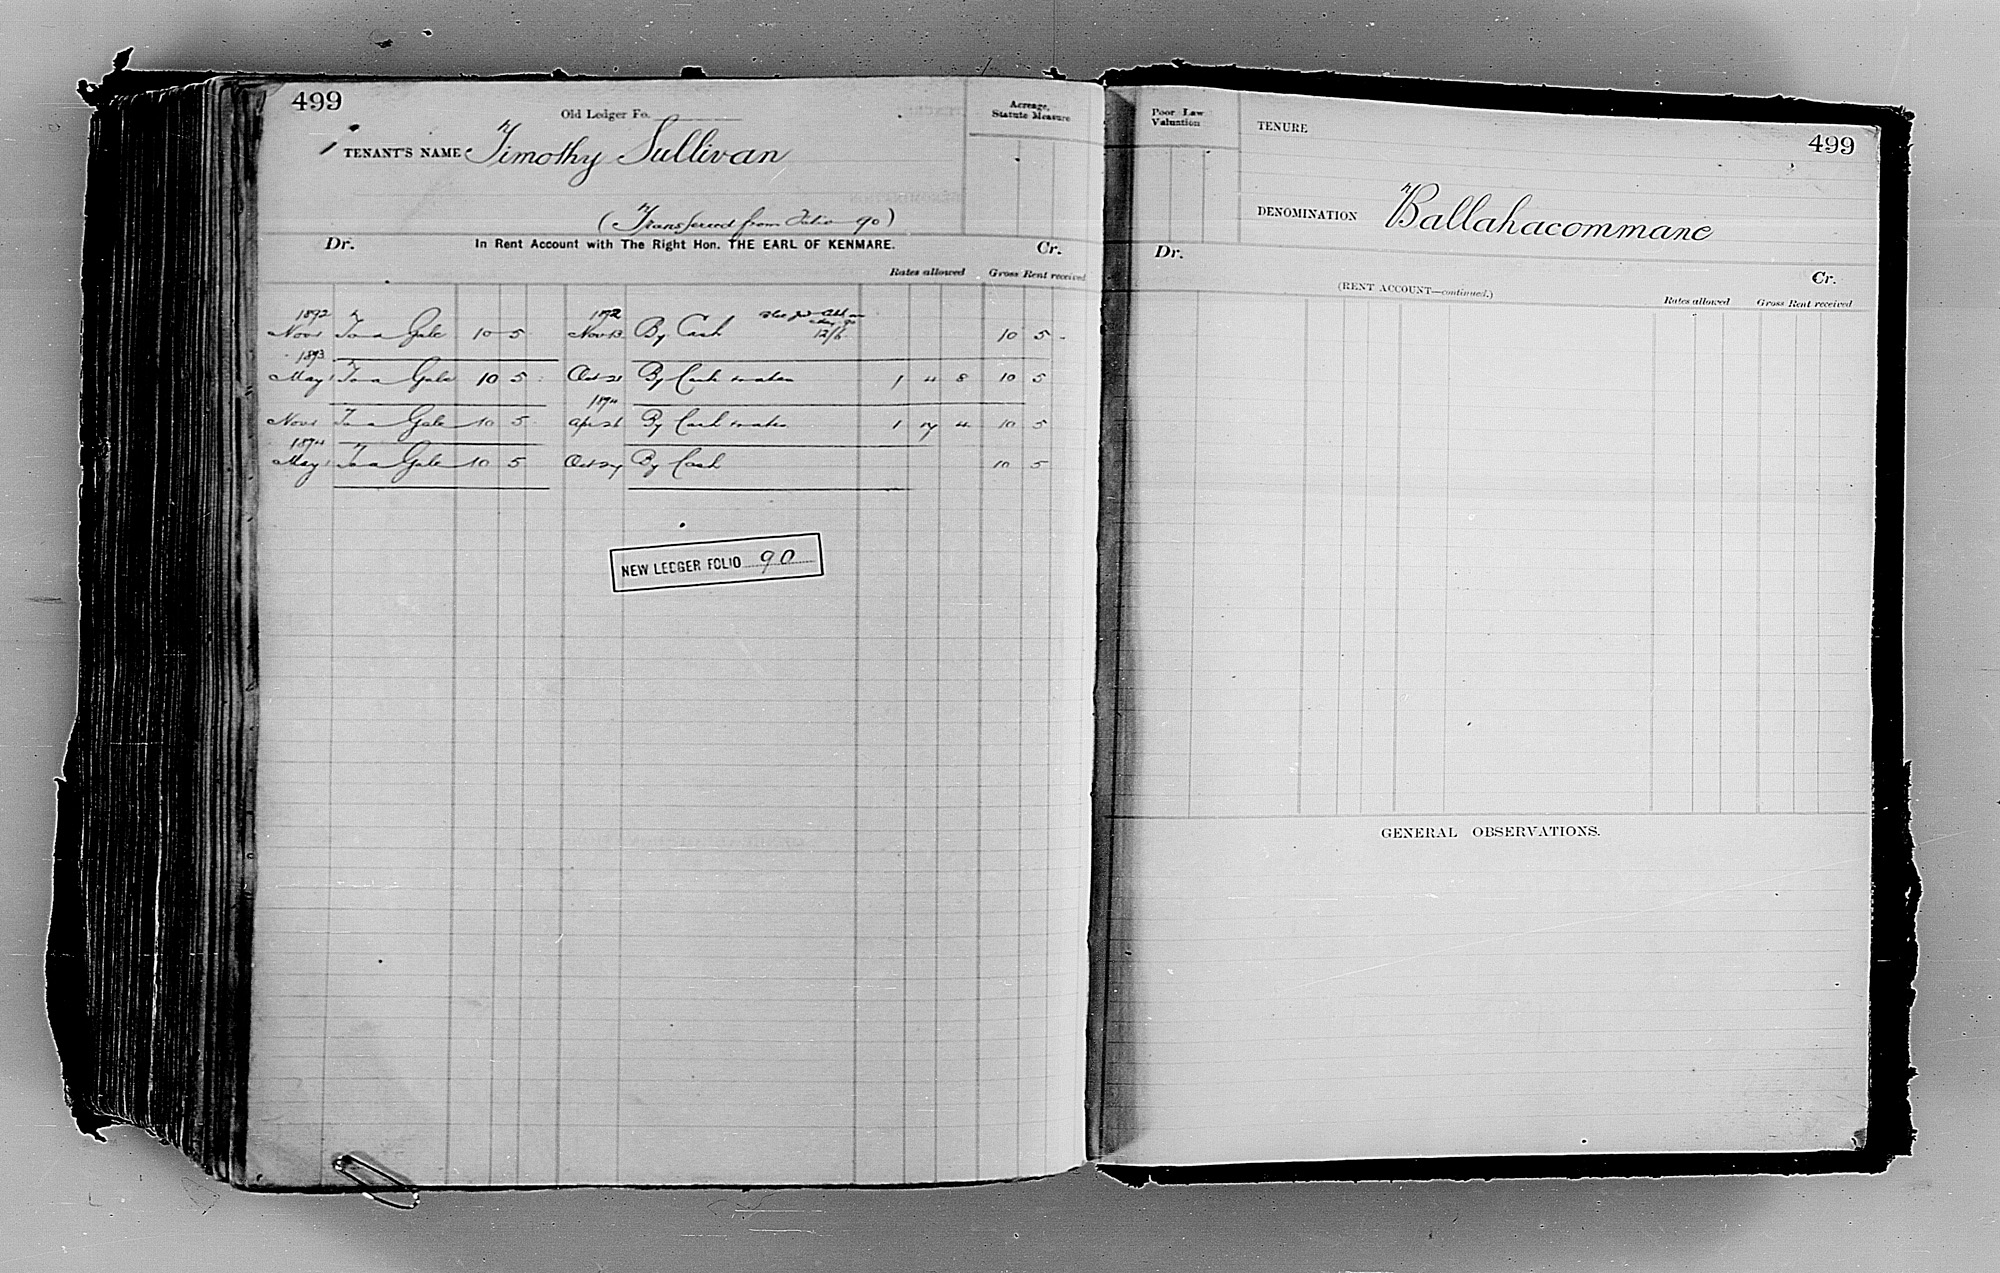 499
Old Ledger Fo.
Acreage,
Statute Measure
TENANT'S NAME Timothy Sullivan
(Transferred from Folio 90)
Dr. In Rent Account with The Right Hon. THE EARL OF KENMARE. Cr.
Rates allowed Gross Rent received
1892 1892
Nov 1 To a Gale 10 5 Nov 13 By Cash 12/6 10 5 -
1893
May 1 To a Gale 10 5 Oct 21 By Cash & rates 1 4 8 10 5
1894
Nov 1 To a Gale 10 5 Apr 26 By Cash & rates 1 17 4 10 5
1894
May 1 To a Gale 10 5 Oct 27 By Cash 10 5
NEW LEDGER FOLIO 90
Poor Law
Valuation
TENURE
499
DENOMINATION Ballahacommane
Dr. Cr.
(RENT ACCOUNT—continued.)
Rates allowed Gross Rent received
GENERAL OBSERVATIONS.